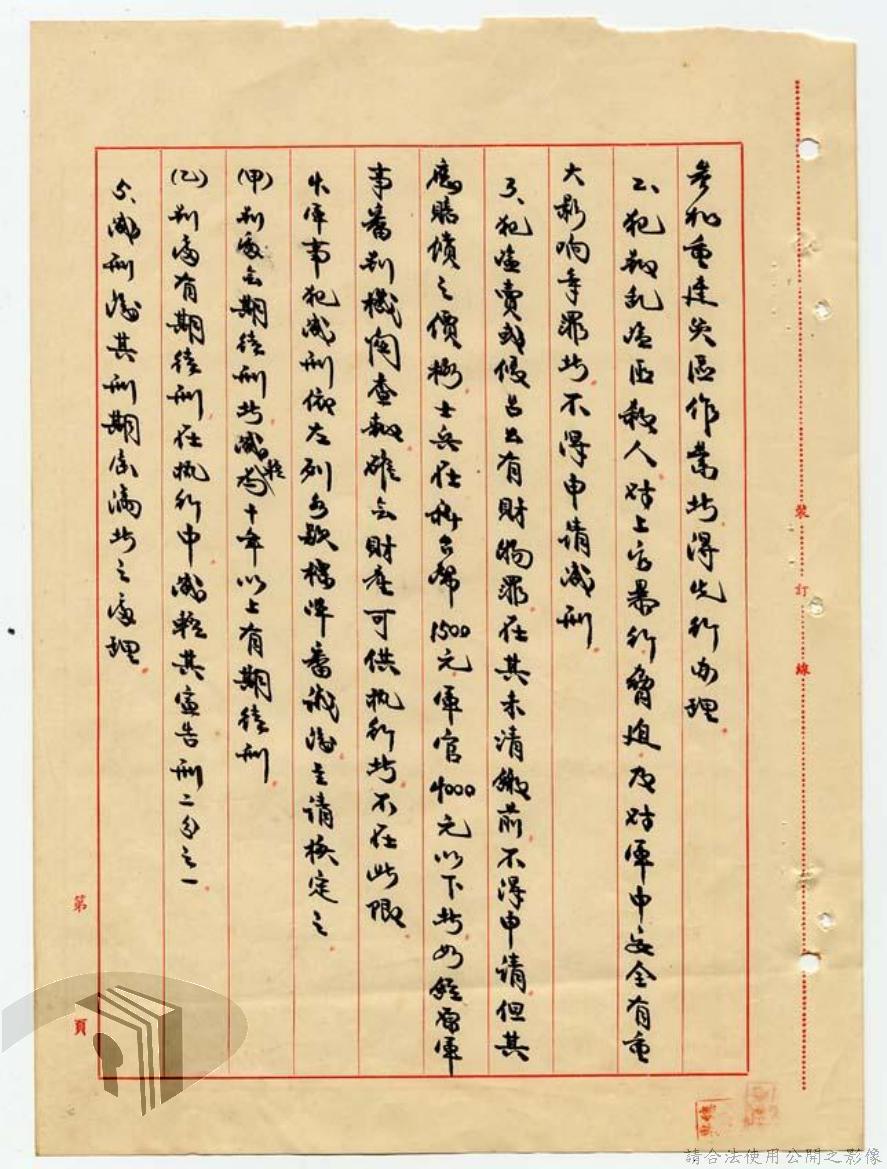 參加重建災區作業者得先行办理
2、犯叛乱盜匪殺人对上官暴行脅迫及对軍中安全有重
大影响等罪者不得申請减刑
3、犯盜賣或侵占公有財物罪在其未清繳前不得申請但其
應賠償之價格士兵在新台幣1500元軍官4000元以下者如經原軍
事審判機関查報確無財產可供执行者不在此限
4、軍事犯减刑依左列各款標準審議後呈請核定之
(甲)判處無期徒刑者减為十年以上有期徒刑
(乙)判處有期徒刑在执行中减輕其宣告刑二分之一
5、减刑後其刑期屆滿者之處理
裝
訂
線
第
頁
請合法使用公開之影像